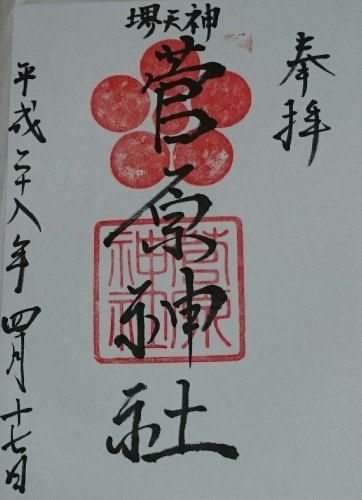 奉拝
堺天神
菅原神社
菅原神社
平成二十八年四月十七日